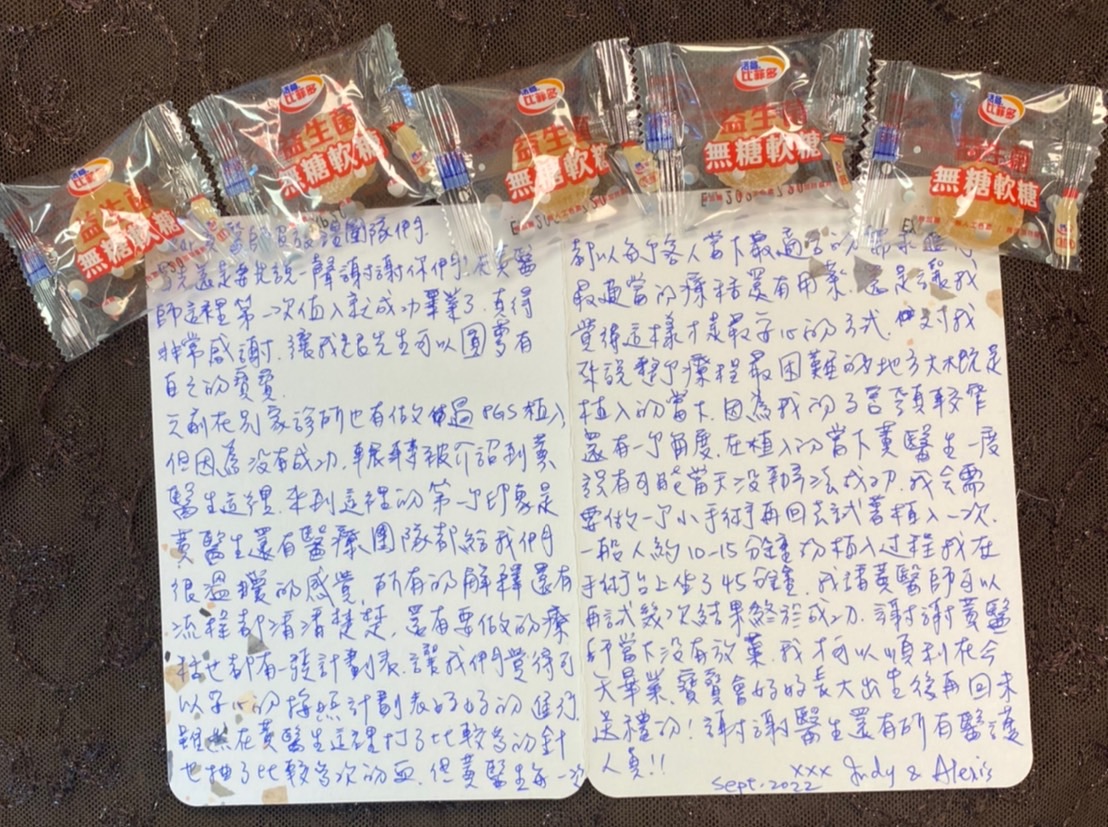 活益
比菲多
益生菌
無糖軟糖
活益
比菲多
益生菌
無糖軟糖
活益
比菲多
益生菌
無糖軟糖
活益
比菲多
益生菌
無糖軟糖
活益
比菲多
益生菌
無糖軟糖
醫師及救護團隊們
還是要先說一聲謝謝你們!在黃醫
師這裡第一次植入就成功畢業了.真得
非常感謝.讓我跟先生可以圓夢有
自己的寶寶.
之前在別家診所也有做過PGS植入,
但因為沒有成功.輾轉被介紹到黃
醫生這裡.來到這裡的第一個印象是
黃醫生還有醫療團隊都給我們
很溫暖的感覺,所有的解釋還有
流程都清清楚楚,還有要做的療
程也都有一張計劃表.讓我們覺得可
以安心的按照計劃表好好的進行.
雖然在黃醫生這裡打了比較多的針
也抽了比較多次的血.但黃醫生每一次
都以每個客人當下最適合的需求
最適當的療程還有用藥.還是讓我
覺得這樣才是最安心的方式.對我
來說整個療程最困難的地方大概是
植入的當下.因為我的子宮頸較窄
還有一個角度.在植入的當下黃醫生一度
說有可能當天沒辦法成功.我會需
要做一個小手術再回去試著植入一次.
一般人約10-15分鐘的植入過程我在
手術台上坐了45分鐘.我請黃醫師可以
再試幾次結果終於成功.謝謝黃醫
師當下沒有放棄.我才可以順利在今
天畢業.寶寶會好好長大出生後再回來
送禮的!謝謝醫生還有所有醫護
人員!!
xxx Judy & Alexis
Sept.2022